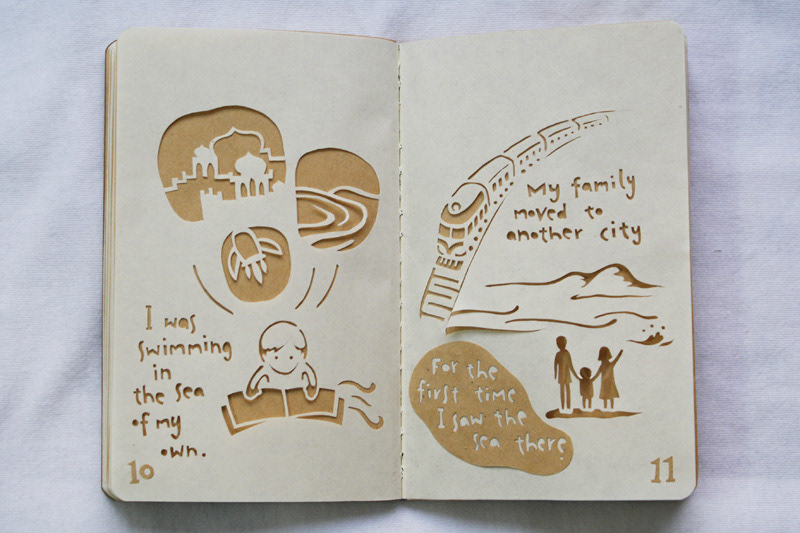 I was
swimming
in
the sea
of my
own.
10
My family
moved to
another city
For the
first time
I saw the
sea there.
11